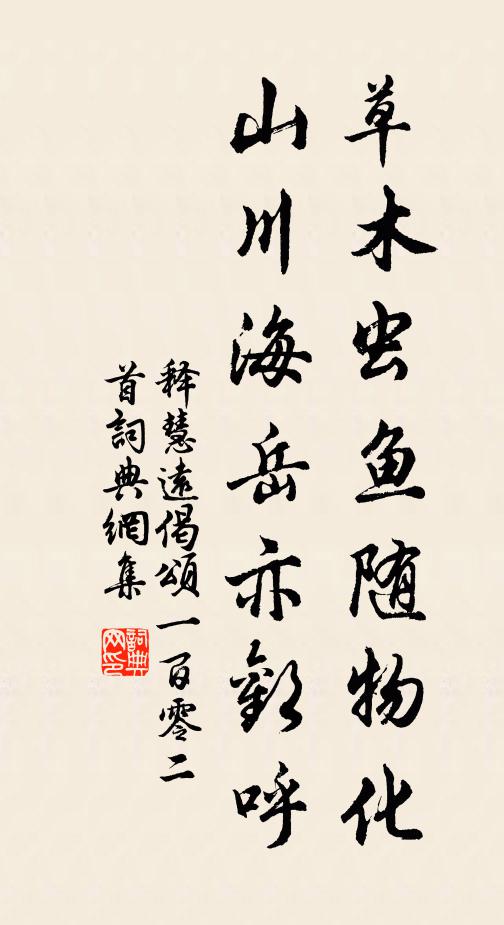 草木虫鱼随物化
山川海岳亦歡呼
释慧遠偈頌一百零二
首詞典網集
詞典
网印